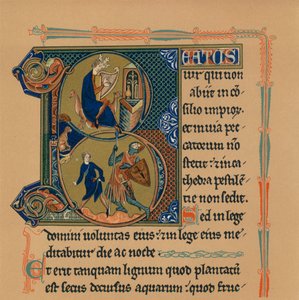 BEATUS
vir qui non
abiit in co
silio impior
et in uia pec
catorum non
stetit ⁊ in ca
thedra pestilē
tie non sedit.
Sed in lege
domini voluntas eius ⁊ in lege eius me
ditabitur die ac nocte
Et erit tanquam lignum quod plantatū
est secus decursus aquarum quod fruc